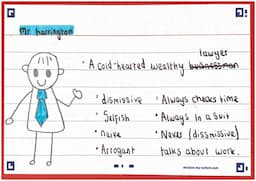 Mr. harrington
lawyer
• A cold-hearted wealthy businessman
• dismissive
• Selfish
• naive
• Arrogant
• Always checks time
• Always in a suit
• Never (dissmissive)
talks about work.